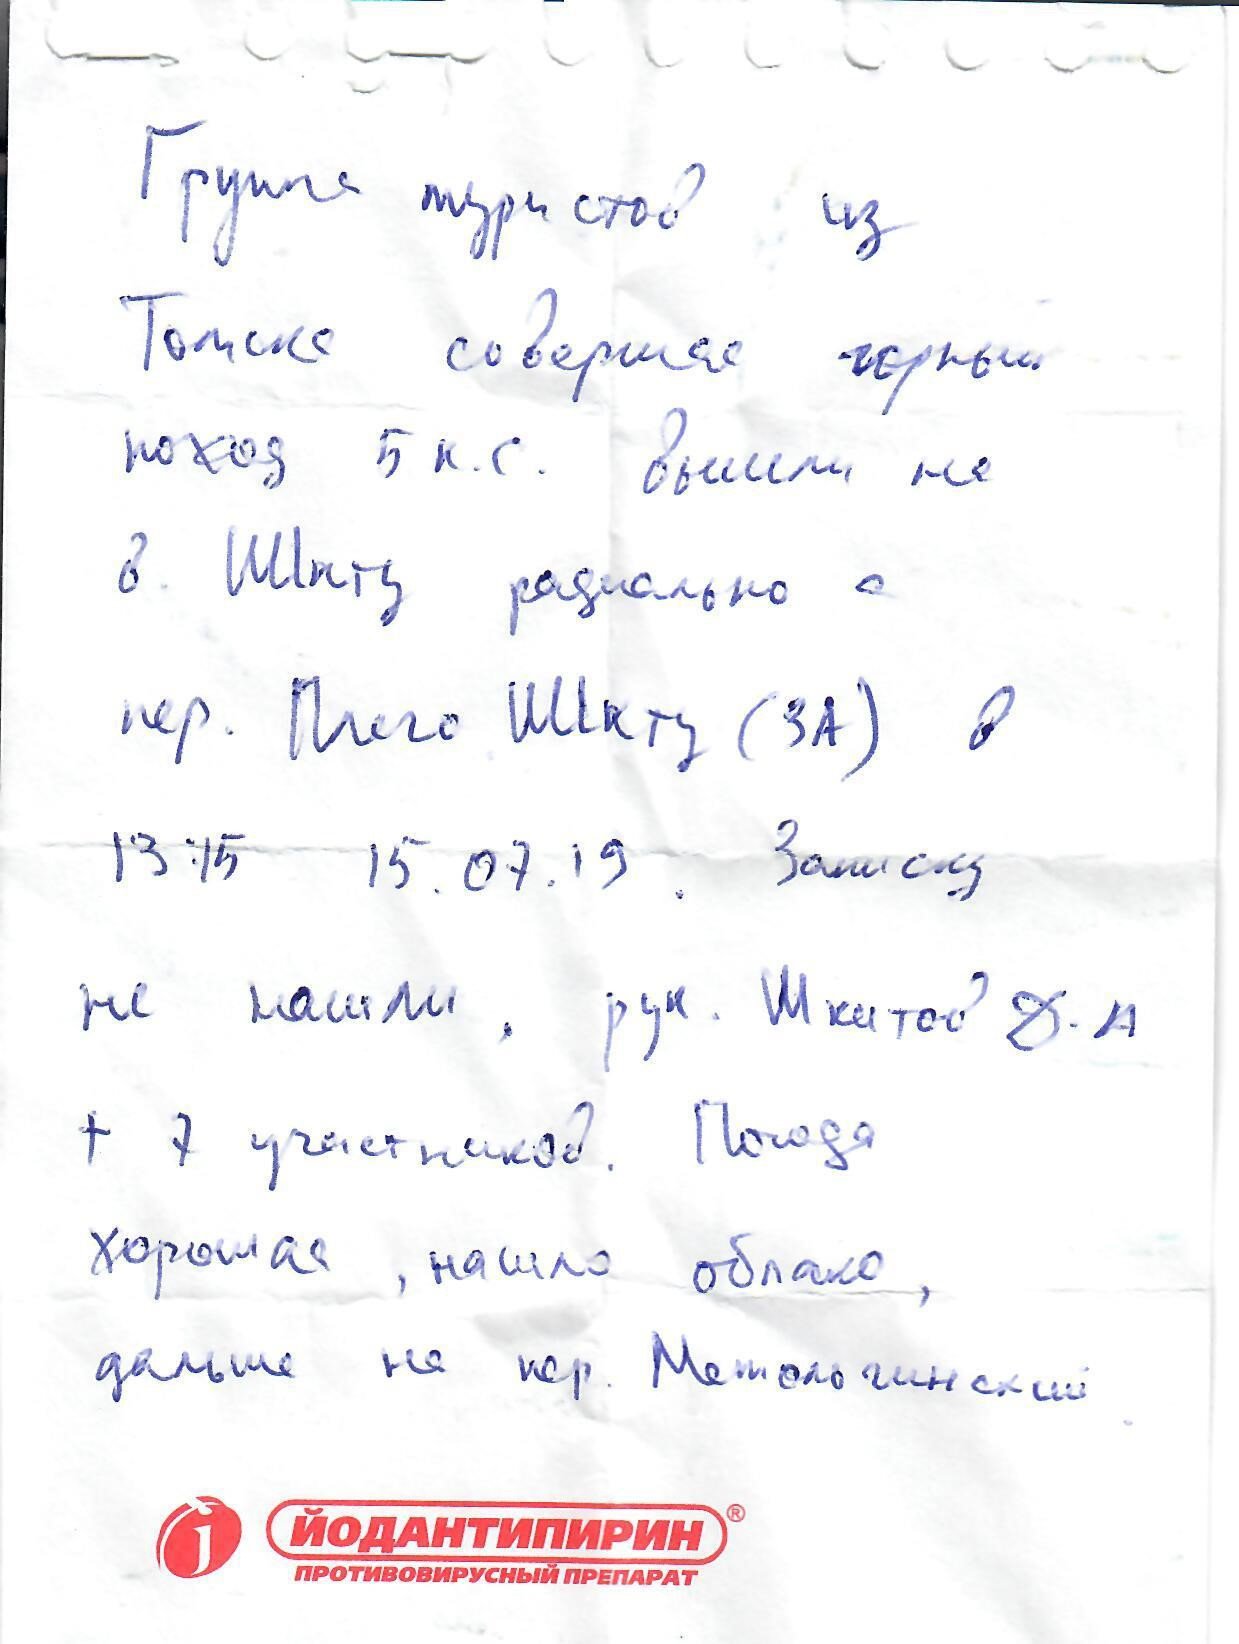 Группа туристов из
Томска совершая горный
поход 5 к.с. вышли на
в. Шкту радиально с
пер. Плего Шкту (3А) в
13:15 15.07.19. Записку
не нашли, рук. Шкитов Д.А
+ 7 участников. Погода
хорошая, нашло облако,
дальше на пер.
ЙОДАНТИПИРИН®
ПРОТИВОВИРУСНЫЙ ПРЕПАРАТ